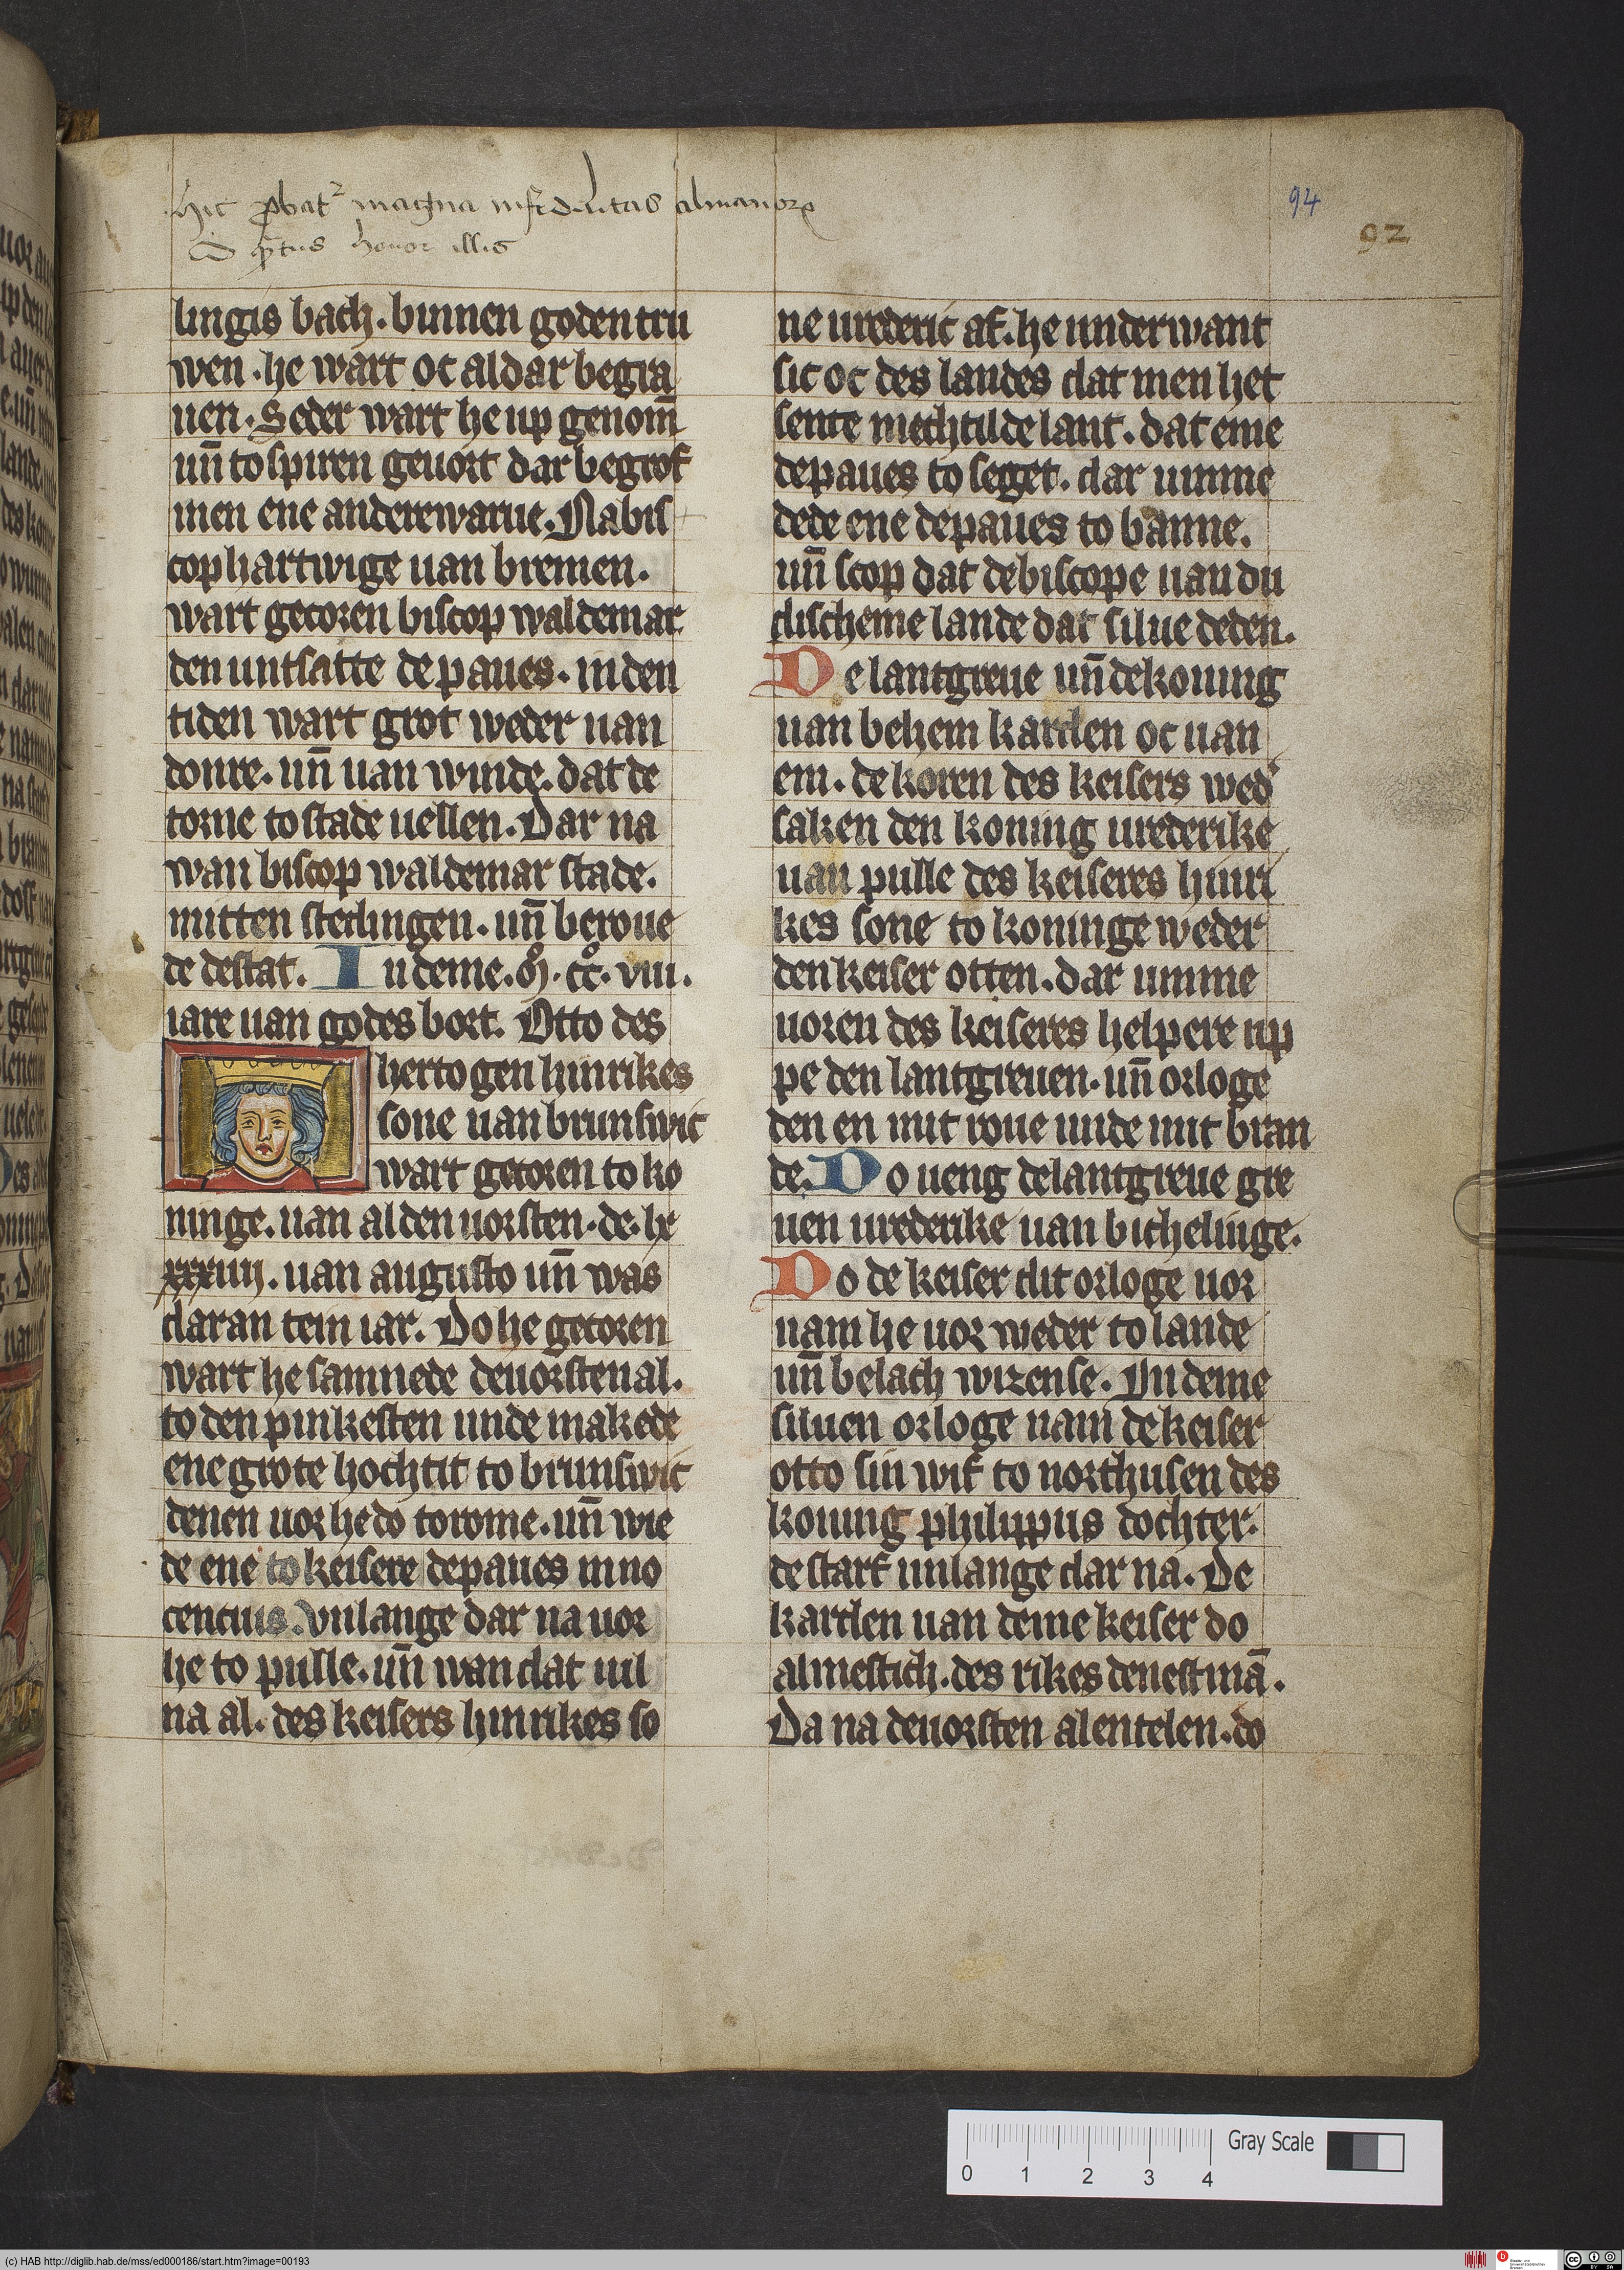 Hic ꝓbatᷣ magna infidelitas almanoꝝ
honor illis
94
92
lingis bach. binnen goden tru
wen. he wart oc aldar begra
uen. Seder wart he up genom̄
un̄ to spiren geuort dar begrof
men ene anderewarue. Nabis
cop hartwige uan bremen.
wart gecoren biscop waldemar
den untsatte de paues. in den
tiden wart grot weder uan
donre. un̄ uan winde. dat de
torne to stade uellen. Dar na
wan biscop waldemar stade.
mitten stedingen. un̄ beroue
de de stat. In deme. m̊. cc̊. viii.
iare uan godes bort. Otto des
hertogen hinrikes
sone uan brunswic
wart gecoren to ko
ninge. uan al den uorsten. de. lx
xxxiiij. uan augusto un̄ was
dar an tein iar. Do he gecoren
wart he samnede de uorsten al.
to den pinkesten unde makede
ene grote hochtit to brunswic
denen uor he do to rome. un̄ wie
de ene to keisere de paues inno
centius. Vnlange dar na uor
he to pulle. un̄ wan dat uil
na al. des keisers hinrikes so
ne urederic af. he underwant
sic oc des landes dat men het
sente mechtilde lant. dat eme
de paues to seget. dar umme
dede ene de paues to banne.
un̄ scop dat de biscope uan du
discheme lande dat silue deden.
De lantgreue un̄ de koning
uan behem karden oc uan
em. de koren des keisers wed᷑
saken den koning urederike
uan pulle des keiseres hinri
kes sone to koninge weder
den keiser otten. dar umme
uoren des keiseres helpere up
pe den lantgreuen. un̄ orloge
den en mit roue unde mit bran
de. Do ueng de lantgreue gre
uen urederike uan bichelinge.
Do de keiser dit orloge uor
nam he uor weder to lande
un̄ belach wizense. In deme
siluen orloge nam de keiser
otto sin wif to northusen des
koning philippus dochter.
de starf unlange dar na. De
karden uan deme keiser do
almestich. des rikes denestmā.
Da na de uorsten alentelen. do
0 1 2 3 4
Gray Scale
(c) HAB http://diglib.hab.de/mss/ed000186/start.htm?image=00193